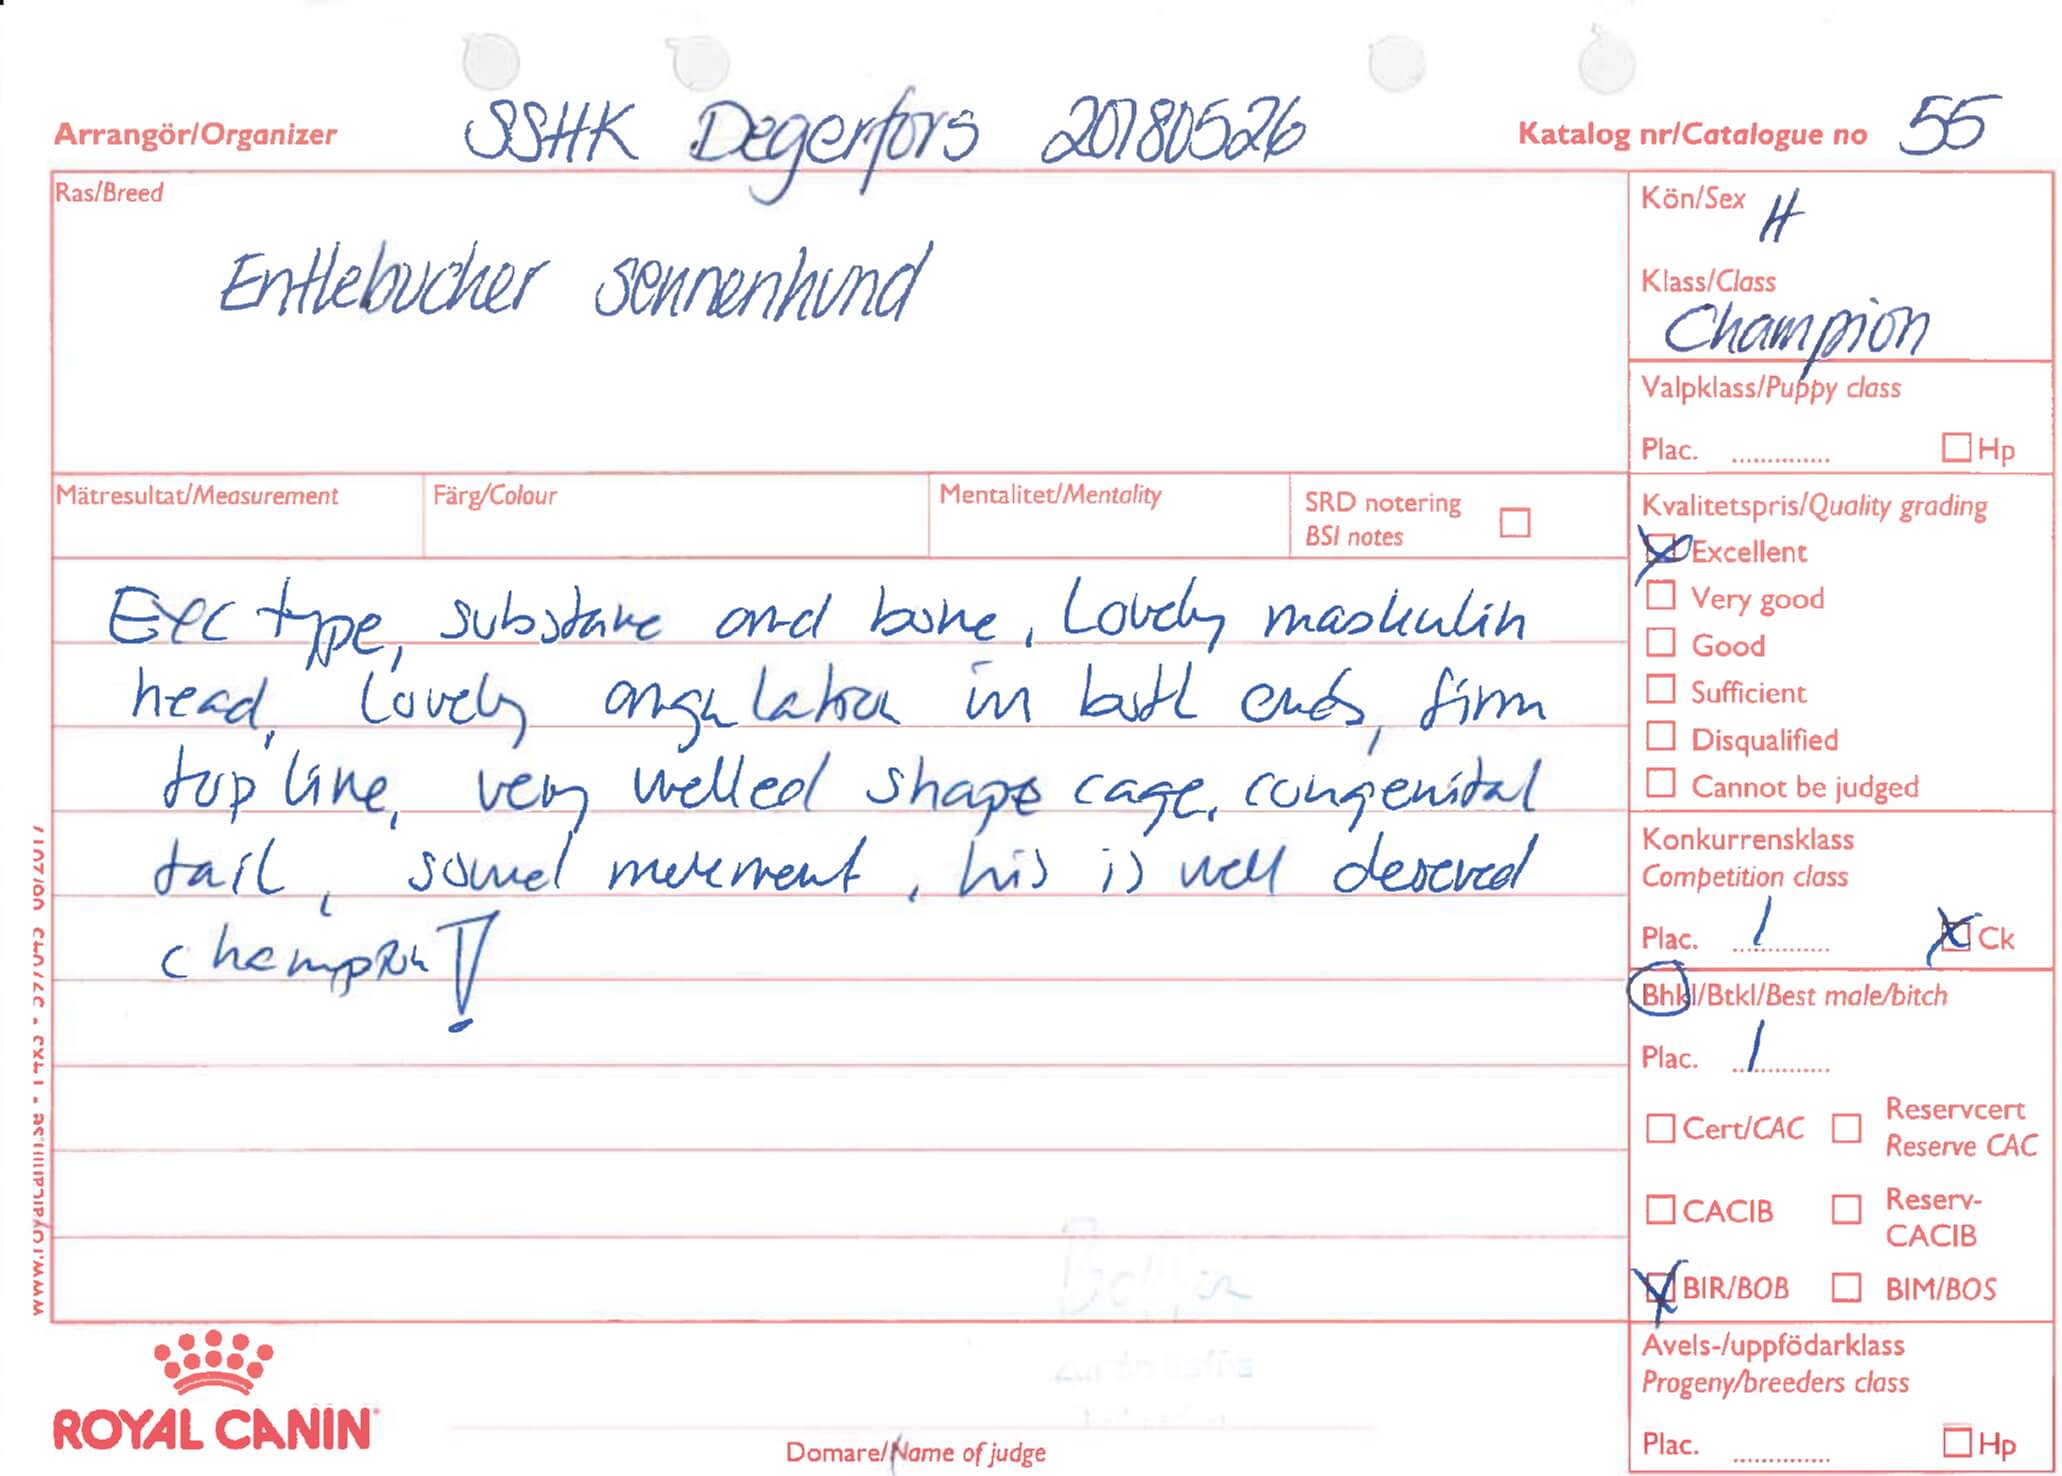 Arrangör/Organizer SSHK Degerfors 20180526 Katalog nr/Catalogue no 55
Ras/Breed
Entlebucher sennenhund
Kön/Sex H
Klass/Class
Champion
Valpklass/Puppy class
Plac. ............. Hp
Mätresultat/Measurement Färg/Colour Mentalitet/Mentality SRD notering
BSI notes
Kvalitetspris/Quality grading
Excellent
Very good
Good
Sufficient
Disqualified
Cannot be judged
Exc type, substance and bone, Lovely maskulin
head, Lovely angulation in both ends, firm
top line, very welled shape cage, congenital
tail, sound movement, his is well deserved
champion!
Konkurrensklass
Competition class
Plac. 1 Ck
Bhkl/Btkl/Best male/bitch
Plac. 1
Cert/CAC Reservcert
Reserve CAC
CACIB Reserv-
CACIB
BIR/BOB BIM/BOS
Avels-/uppfödarklass
Progeny/breeders class
Plac. ............. Hp
ROYAL CANIN
Domare/Name of judge